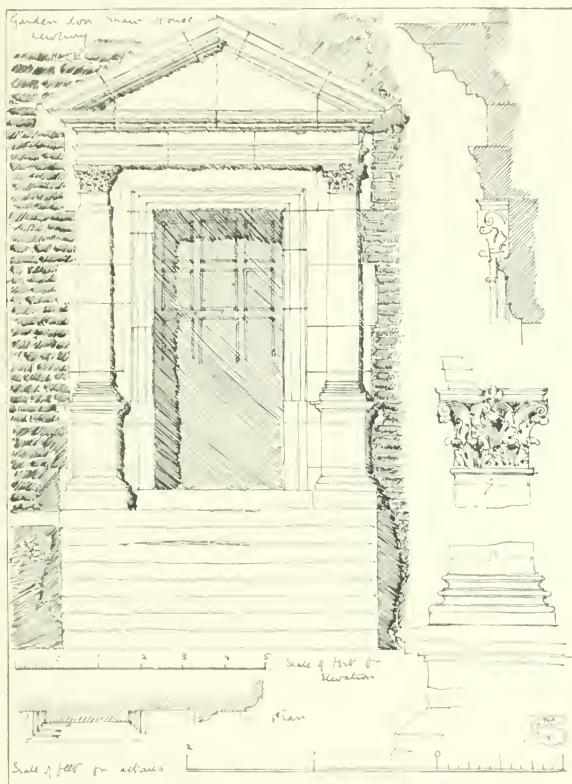 Garden door Shaw House
Newbury
1 2 3 4 5
Scale of Feet for
Elevation
Plan
Scale of feet for details